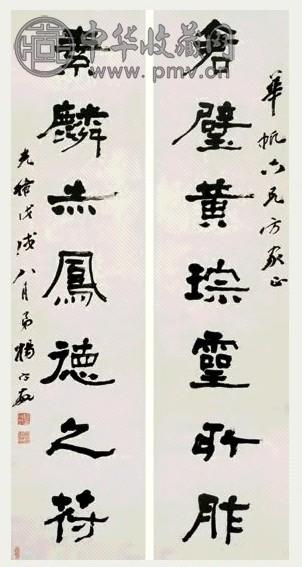 中华收藏网
www.pmv.cn
華帆六兄方家正
倉璧黃琮靈所胙
素麟赤鳳德之苻
光緒戊戌八月弟楊守敬